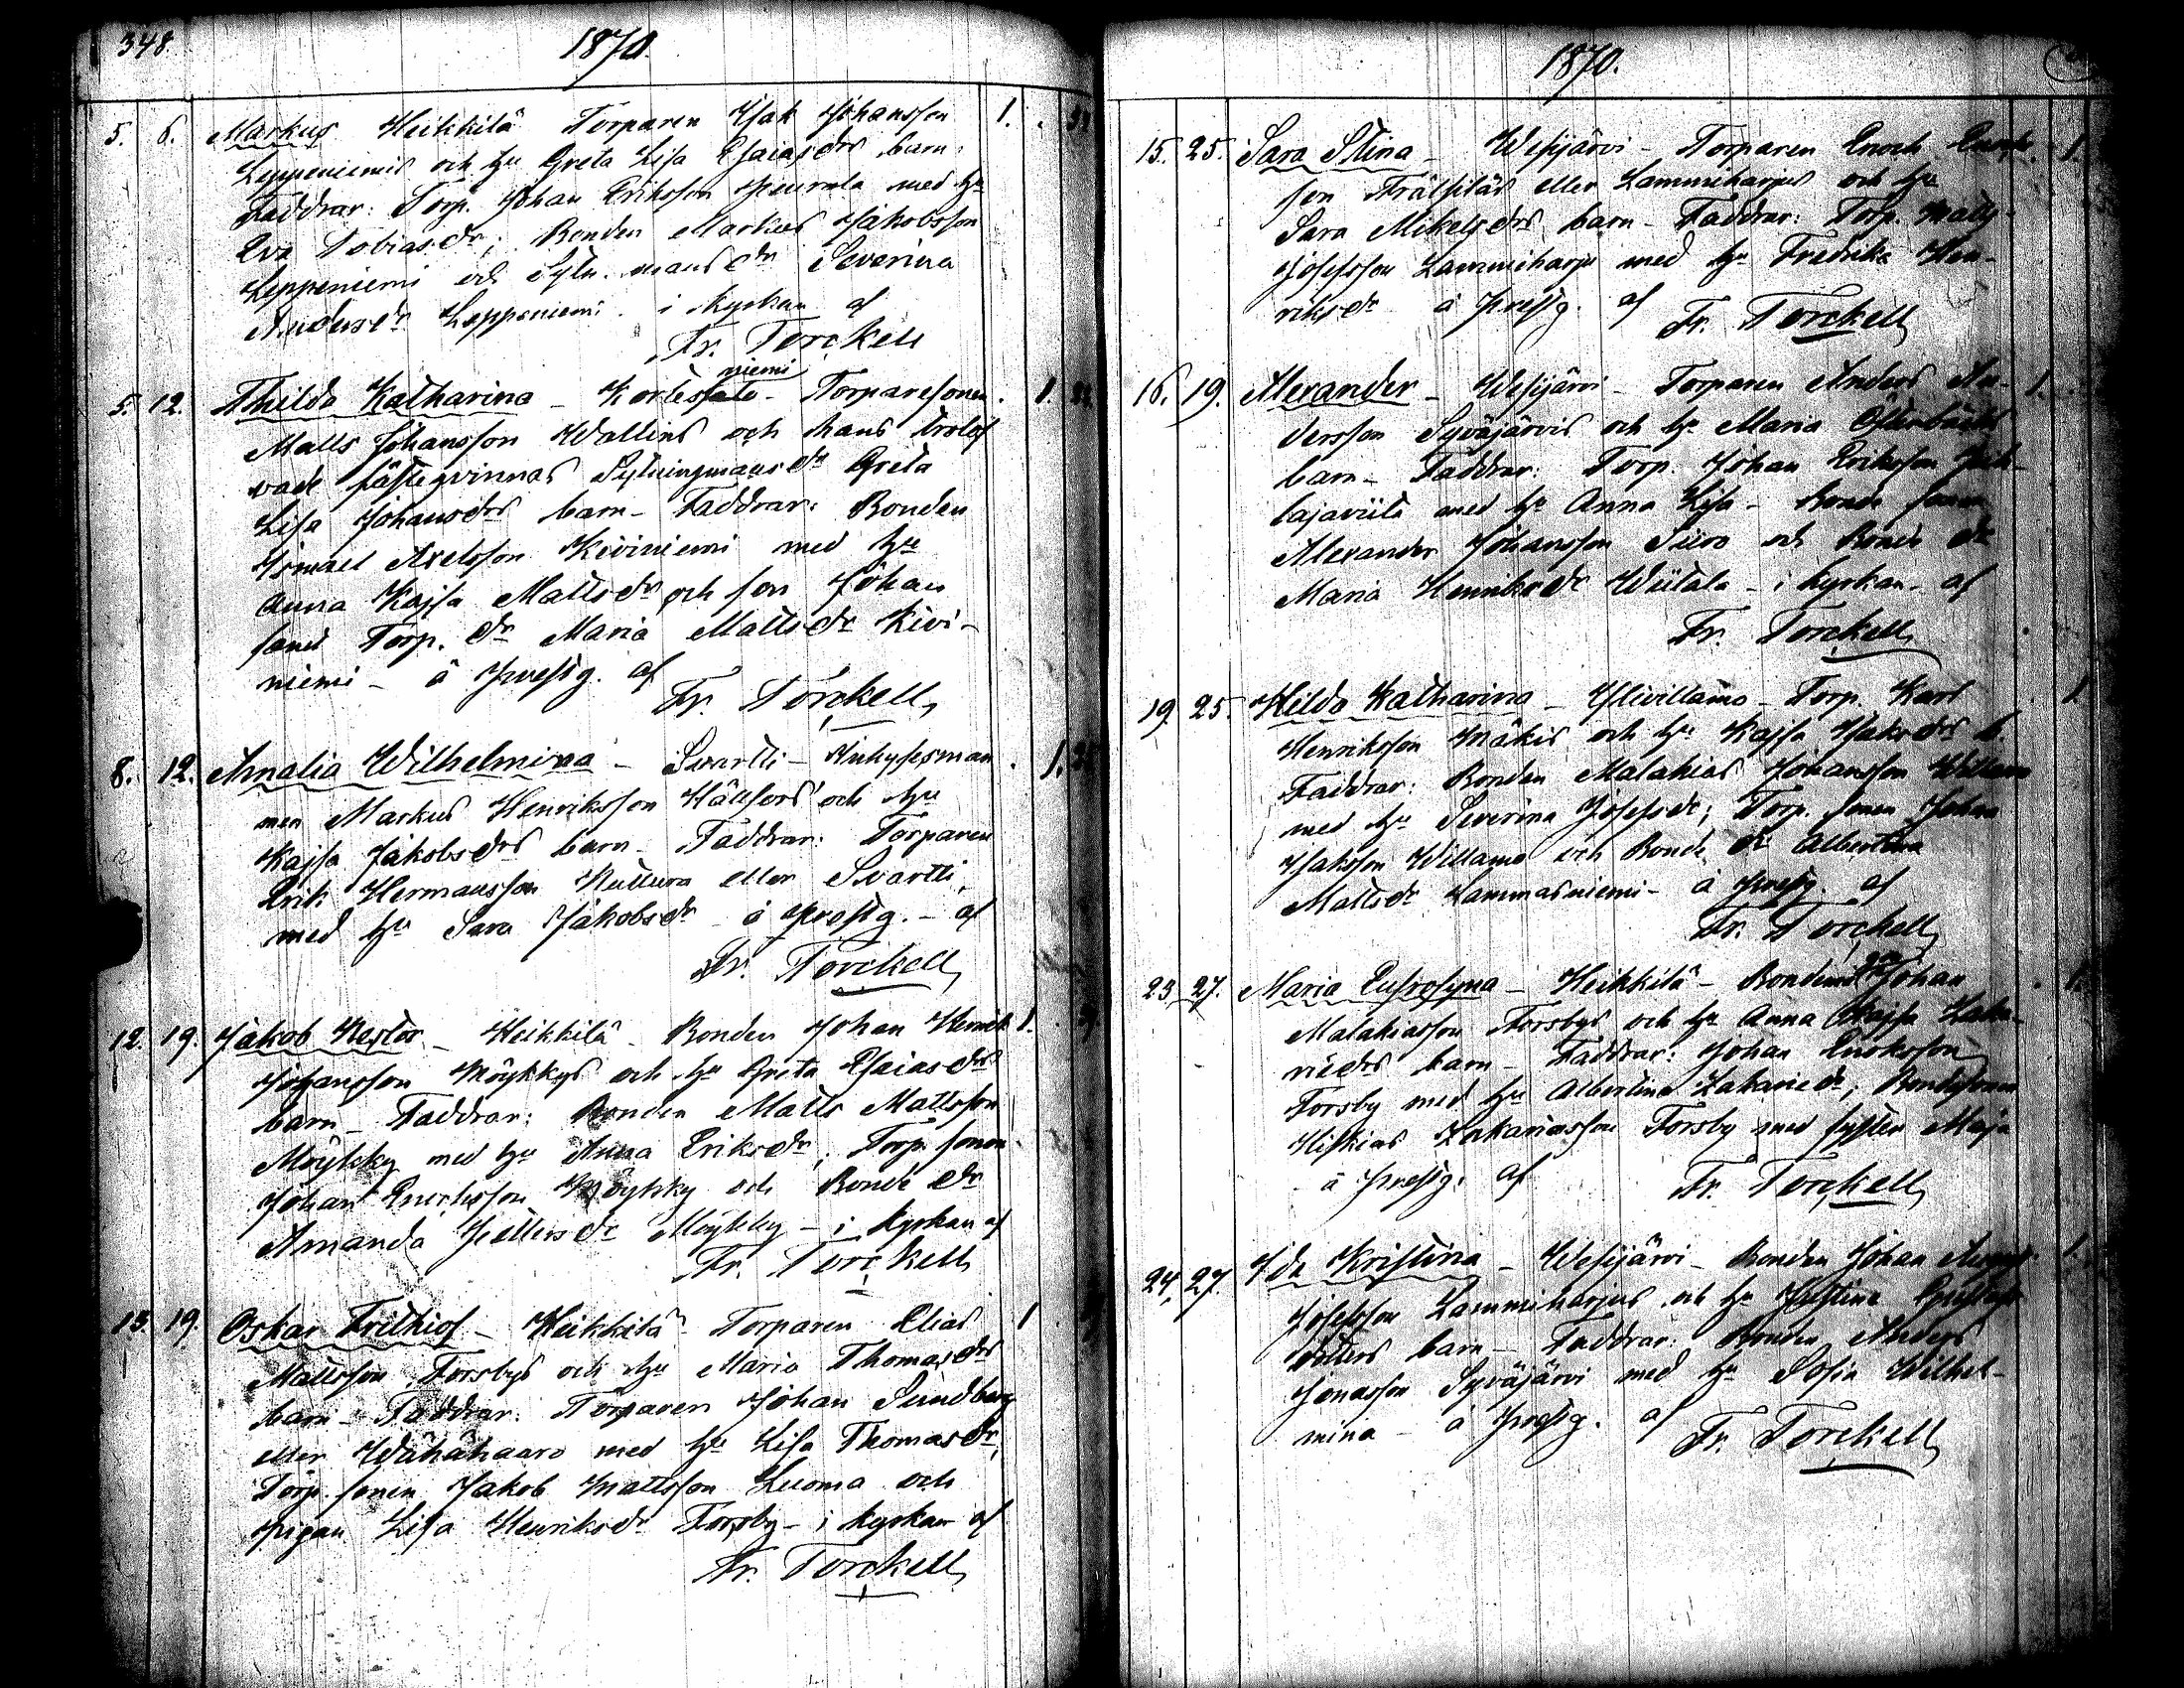 348.
1870.
5. 6. Markus Heikkilä Torparen Isak Johansson 1.
Leppeniemis och hu Greta Lisa Esaiasdrs barn.
Faddrar: Torp. Johan Eriksson med hu
Eva Tobiasdr; Bonden Markus Jakobsson
Leppeniemi och Sytn. mans dr Severina
Andersdr Leppeniemi. i kyrkan af
Fr. Torckell
niemi
5. 12. Thilda Katharina – Kortes – Torparesonen 1.
Matts Johansson Wallins och hans trolof
vade fästeqvinnas Sytningmansdr Greta
Lisa Johansdrs barn – Faddrar: Bonden
Ismael Axelsson Kiviniemi med hu
Anna Kajsa Mattsdr och son Johan
samt Torp. dr Maria Mattsdr Kivi-
niemi – å prestg. af
Fr. Torckell
8. 12. Amalia Wilhelmina – Svartti – Inhysesman 1.
nen Markus Henriksson Hällfors och hu
Kajsa Jakobsdrs barn – Faddrar: Torparen
Erik Hermansson eller Svartti,
med hu Sara Jakobsdr å prestg. – af
Fr. Torckell
12. 19. Jakob Nestor – Heikkilä – Bonden Johan Henrik 1.
Johansson Möykkys och hu Greta Esaiasdrs
barn – Faddrar: Bonden Matts Mattsson
Möykky med hu Anna Eriksdr; Torp. sonen
Johan Enocksson Möykky och Bonde dr
Amanda Pettersdr Möykky – i kyrkan af
Fr. Torckell
13. 19. Oskar Frithiof – Heikkilä – Torparen Elias 1
Mattsson Forsbys och hu Maria Thomasdrs
barn – Faddrar: Torparen Johan Sundberg
eller Wähähaaro med hu Lisa Thomasdr,
Torp. sonen Jakob Mattsson Luoma och
pigan Lisa Henriksdr Forsby – i kyrkan af
Fr. Torckell
1870.
15. 25. Sara Stina – Wesijärvi – Torparen Enoch Enock- 1.
son Trälfiläs eller Lammiharjus och hu
Sara Mikelsdrs barn – Faddrar: Torp. Matts
Josefsson Lammiharju med hu Fredrika Hen-
riksdr å prestg. af
Fr. Torckell
16. 19. Alexander – Wesijärvi – Torparen Anders An- 1.
dersson Syväjärvis och hu Maria Österbacks
barn – Faddrar: Torp. Johan Eriksson
med hu Anna Lisa – Bonde sonen
Alexander Johansson Siiro och Bonde dr
Maria Henriksdr Wiitala – i kyrkan – af
Fr. Torckell
19. 25. Hilda Katharina – Ylivillamo – Torp. Karl 1.
Henriksson Mäkis och hu Kajsa Isaksdrs b.
Faddrar: Bonden Malakias Johansson Willamo
med hu Severina Josefsdr; Torp. sonen Johan
Isaksson Willamo och Bonde dr Albertina
Mattsdr Lammasniemi – å prestg. af
Fr. Torckell
23. 27. Maria Eufrosyna – Heikkilä – Bonden Johan 1.
Malakiasson Forsbys och hu Anna Kajsa Zaka-
riedrs barn – Faddrar: Johan Enoksson
Forsby med hu Albertina Zakariedr; Bondesonen
Hiskias Zakariasson Forsby med syster Maja
å prestg. af
Fr. Torckell
24. 27. Ida Kristina – Wesijärvi – Bonden Johan 1.
Josefsson Lammiharjus och hu Justina Gustafs
dotters barn – Faddrar: Bonden Anders
Jonasson Syväjärvi med hu Sofia Wilhel-
mina – å prestg. af
Fr. Torckell